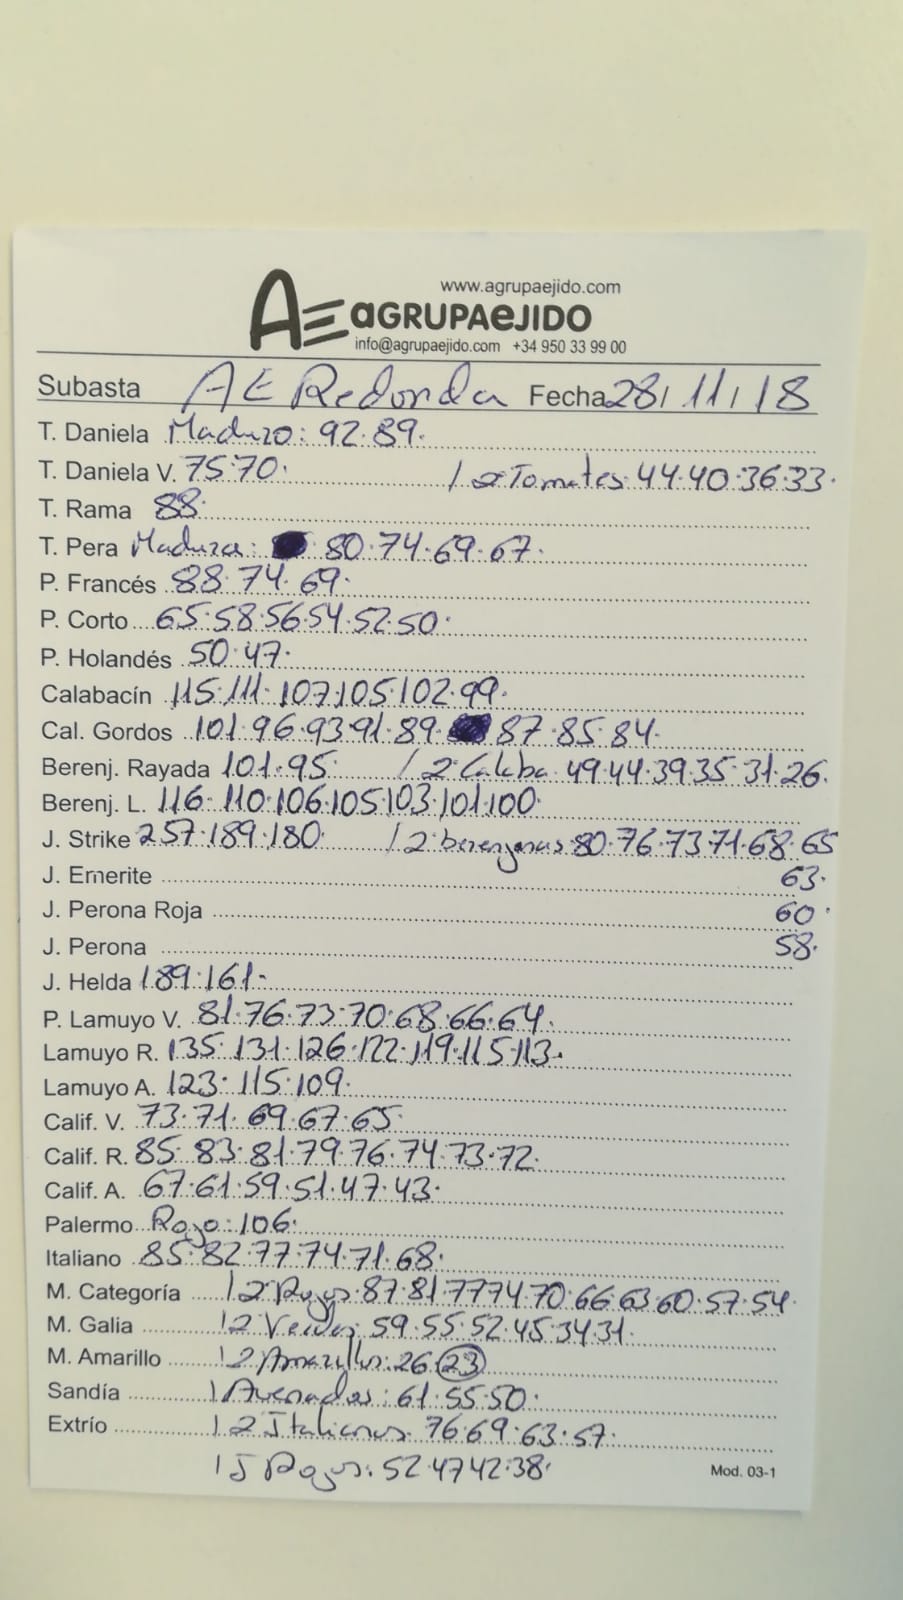 www.agrupaejido.com
AE aGRUPAeJIDO
info@agrupaejido.com +34 950 33 99 00
Subasta AE Redonda Fecha 28/11/18
T. Daniela Maduro: 92·89·
T. Daniela V. 75·70· / 2 Tomates 44·40·36·33·
T. Rama 88·
T. Pera Madura: 80·74·69·67·
P. Francés 88·74·69·
P. Corto 65·58·56·54·52·50·
P. Holandés 50·47·
Calabacín 115·111·107·105·102·99·
Cal. Gordos 101·96·93·91·89· 87·85·84·
Berenj. Rayada 101·95 / 2 Calaba 49·44·39·35·31·26·
Berenj. L. 116·110·106·105·103·101·100·
J. Strike 257·189·180 / 2 berenjenas 80·76·73·71·68·65
J. Emerite 63·
J. Perona Roja 60·
J. Perona 58·
J. Helda 189·161·
P. Lamuyo V. 81·76·73·70·68·66·64·
Lamuyo R. 135·131·126·122·119·115·113·
Lamuyo A. 123·115·109·
Calif. V. 73·71·69·67·65
Calif. R. 85·83·81·79·76·74·73·72·
Calif. A. 67·61·59·51·47·43·
Palermo Rojo: 106·
Italiano 85·82·77·74·71·68·
M. Categoría / 2 Rojos 87·81·77·74·70·66·63·60·57·54·
M. Galia / 2 Verdes 59·55·52·45·34·31·
M. Amarillo / 2 Amarillos: 26·23
Sandía / Asurados: 61·55·50·
Extrío / 2 Italianos 76·69·63·57·
Rojos: 52·47·42·38·
Mod. 03-1